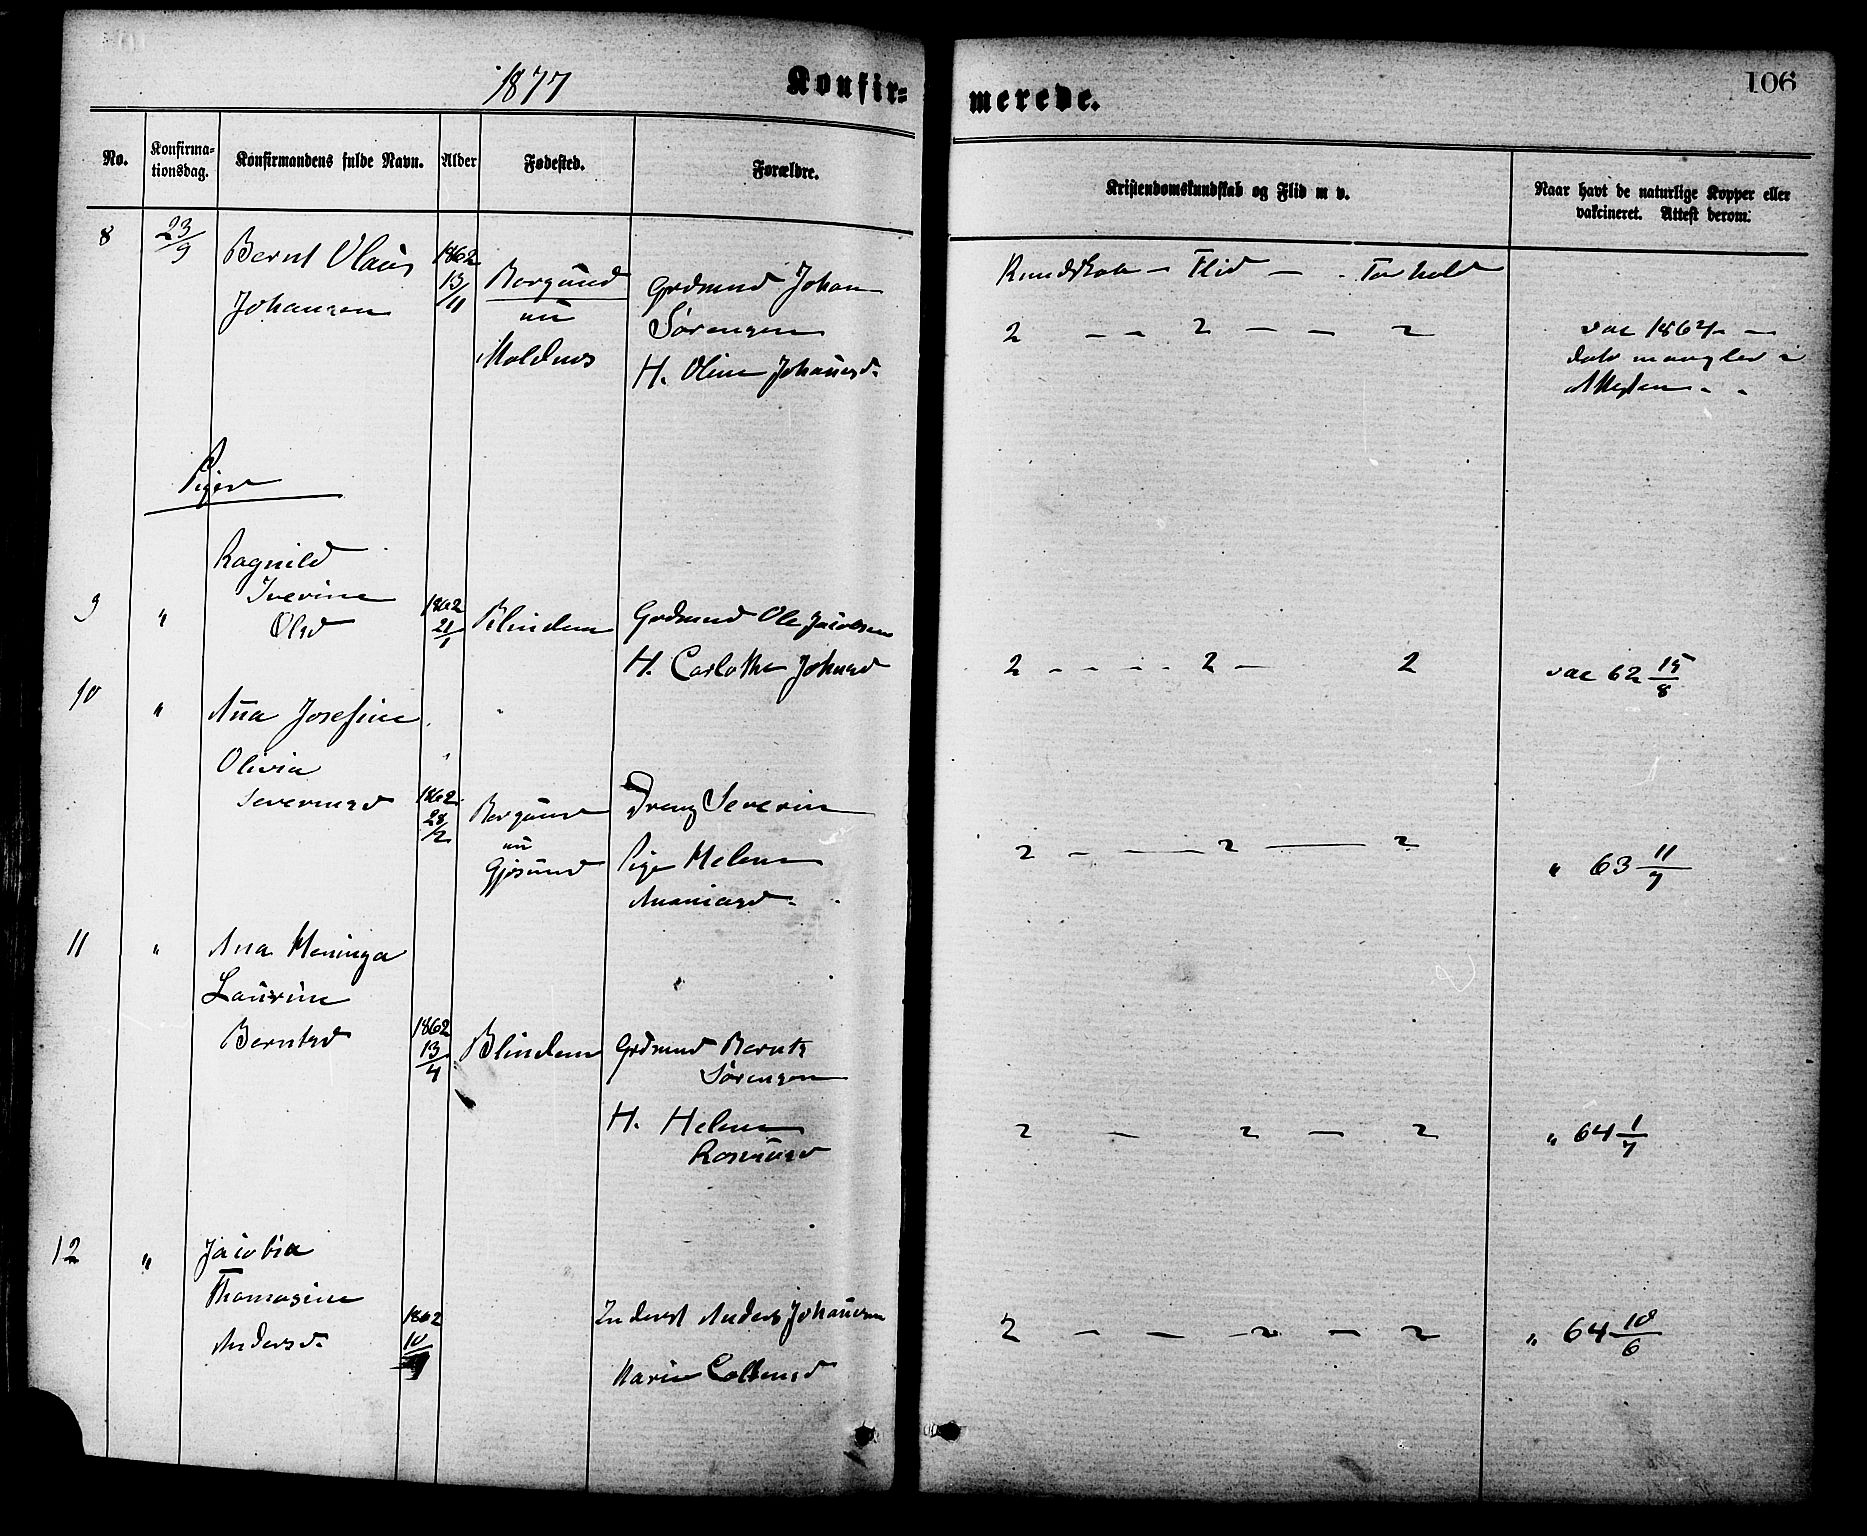 1877 Konfir=
merede.
106
No. Konfirma-
tionsdag. Konfirmandens fulde Navn. Alder Fødested. Forældre.
Kristendomskundskab og Flid m v. Naar havt de naturlige Kopper eller
vakcineret. Attest derom.
8 23/9 Bernt Olaus 1862 Borgund Grdmand Johan
Johansen 13/11 nu Sørensen
Moldnes H. Oline Johansd.
Kundskab - Flid - Forhold
2 - - 2 - - 2 vac 1864 -
dato mangler i
Attesten - -
Piger
Ragnild
Iverine
9 " Olsd 1862 21/1 Blindem Grdmand Ole Jacobsen
H. Carlotha Johnsd
2 - - - - 2 - 2 vac 62 15/8
10 " Ana Josefine
Olivia
Severinsd 1862 28/2 Borgund Dreng Severin
nu
Gjøsund Pige Helene
Ananiasd.
2 - - - 2 - 2 " 63 11/7
11 " Ana Meninga
Laurine
Berntsd 1862 13/4 Blindem Grdmand Bernt
Sørensen
H. Helene
Rasmusd
2 - 2 - 2 " 64 1/7
12 " Jacobia
Thomasine
Andersd. 1862 10/ Inderst Anders Johansen
Karine
2 - - 2 - 2 " 64 10/6